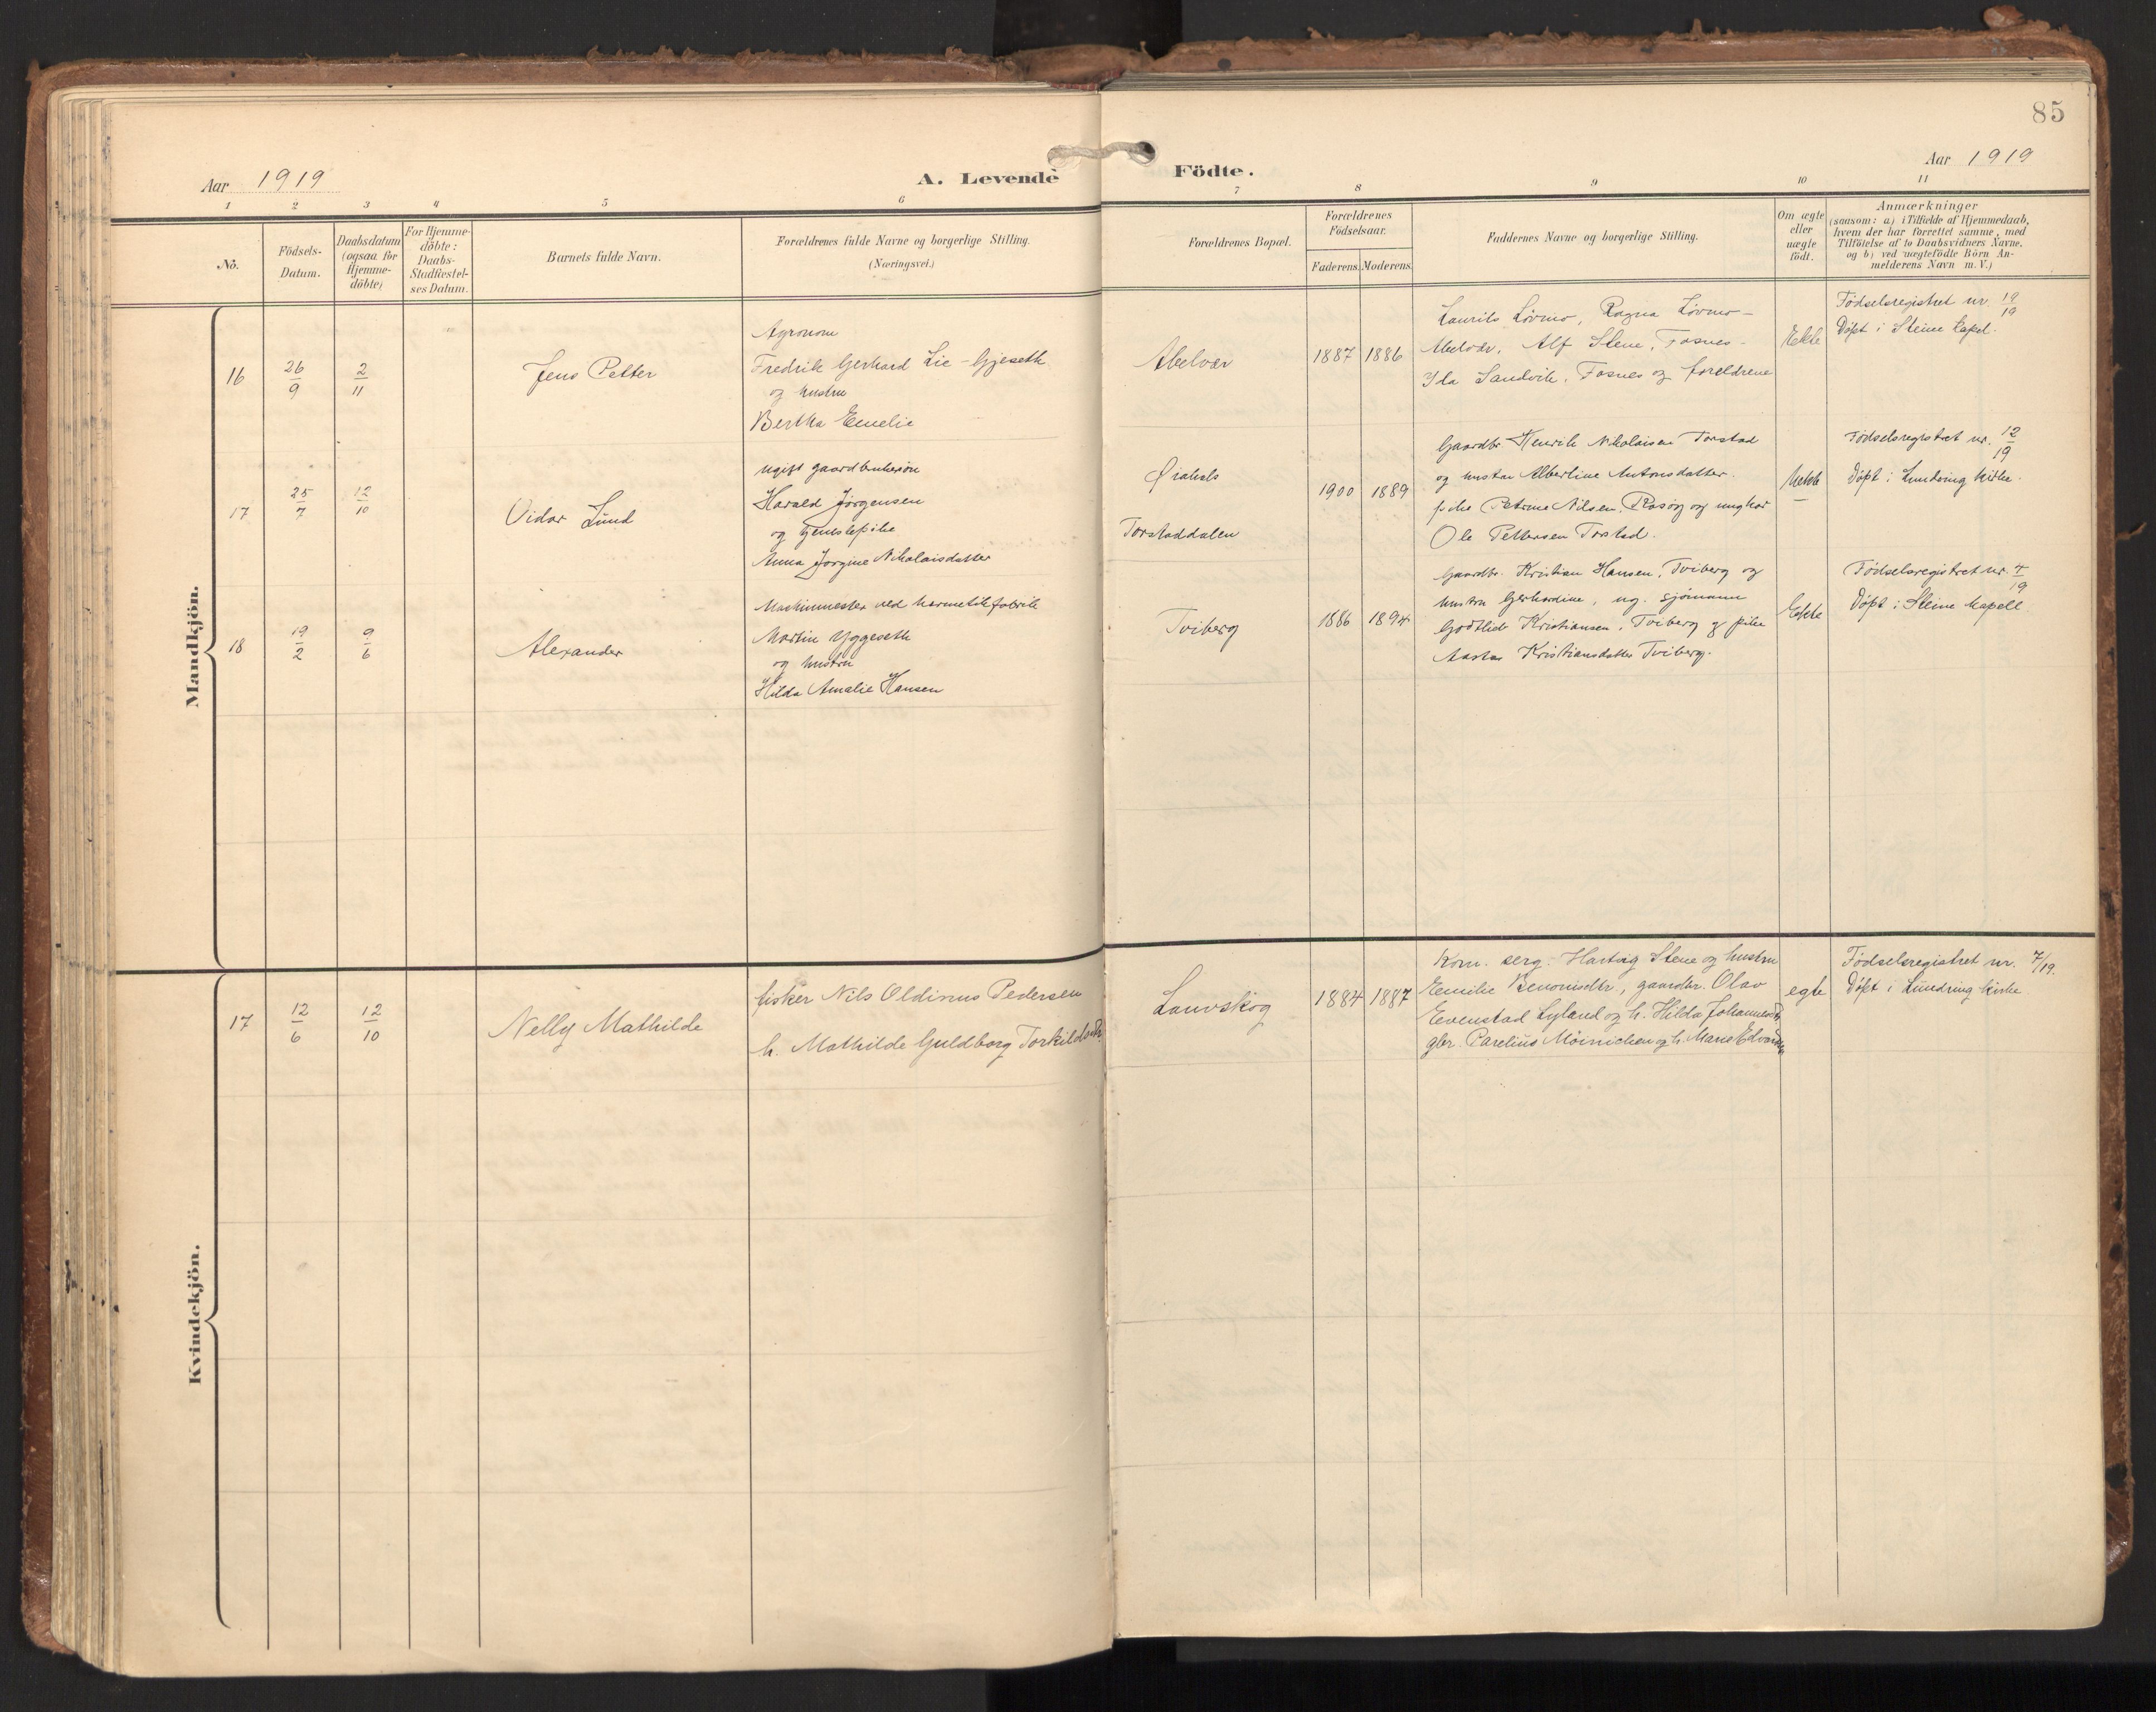 85
Aar 1919
A. Levende
Födte.
Aar 1919
1 2 3 4 5 6
7 8 9 10 11
No.
Födsels-
Datum.
Daabsdatum
(ogsaa for
Hjemme-
döbte)
For Hjemme-
döbte:
Daabs-
Stadfæstel-
ses Datum.
Barnets fulde Navn.
Forældrenes fulde Navne og borgerlige Stilling.
(Næringsvei.)
Forældrenes Bopæl.
Forældrenes
Födselsaar.
Faderens. Moderens.
Faddernes Navne og borgerlige Stilling.
Om ægte
eller
uægte
födt.
Anmærkninger
(saasom: a) i Tilfælde af Hjemmedaab,
hvem der har forrettet samme, med
Tilföielse af to Daabsvidners Navne.
og b) ved uægtefödte Börn An-
melderens Navn m.V.)
Mandkjön.
16
26/9
2/11
Jens Petter
Agronom
Fredrik Gerhard Lie-Gjeseth
og hustru
Bertha Emelie
Abelvær
1887 1886
Laurits Lövmo, Ragna Lövmo -
Abelvær, Alf Stene, Fosnes -
Ida Sandvik, Fosnes og foreldrene
Ekte
Födselsregistret nr. 19/19
Döpt i Steine kapel.
17
25/7
12/10
Vidar Lund
ugift gaardbrukersön
Harald Jörgensen
og tjenestepike
Anna Jörgine Nikolaisdatter
Torstaddalen
1900 1889
Gaardbr. Henrik Nikolaisen Torstad
og hustru Albertine Antonsdatter.
pike Petrine Nilsen, Rosög og ungkar
Ole Pettersen Torstad.
Uekte
Födselsregistret nr. 12/19
Döpt i Lundring kirke.
18
19/2
9/6
Alexander
Maskinmester ved hermetikfabrik
Martin Yggeseth
og hustru
Hilda Amalie Hansen
Tviberg
1886 1894
Gaardbr. Kristian Hansen, Tviberg og
hustru Gerhardine, ug. sjömann
Godtlieb Kristiansen, Tviberg og pike
Aasta Kristiansdatter Tviberg.
Ekte
Födselsregistret nr. 4/19
Döpt i Steine kapell
Kvindekjön.
17
12/6
12/10
Nelly Mathilde
fisker Nils Oldinus Pedersen
h. Mathilde Guldborg Torkildsdtr.
Lauvskog
1884 1887
Korn. serg. Hartvig Stene og hustru
Emilie Benonisdtr, gaardbr. Olav
Evenstad Lyland og h. Hilda Johannesdtr,
gbr. Parelius Möinichen og h. Marie Edvardsen
egte
Födselsregistret nr. 7/19.
Döpt i Lundring kirke